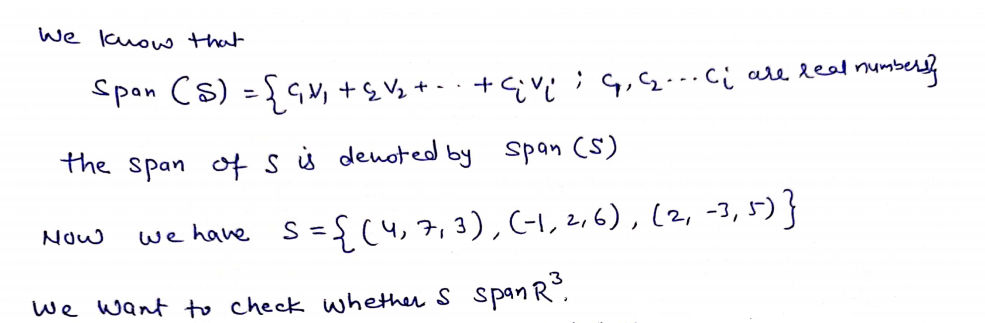 We know that
Span (S) = {c₁v₁ + c₂v₂ + ... + cᵢvᵢ ; c₁, c₂ ... cᵢ are real numbers}
the span of s is denoted by span (S)
Now we have S = {(4, 7, 3), (-1, 2, 6), (2, -3, 5)}
We want to check whether S span R³.